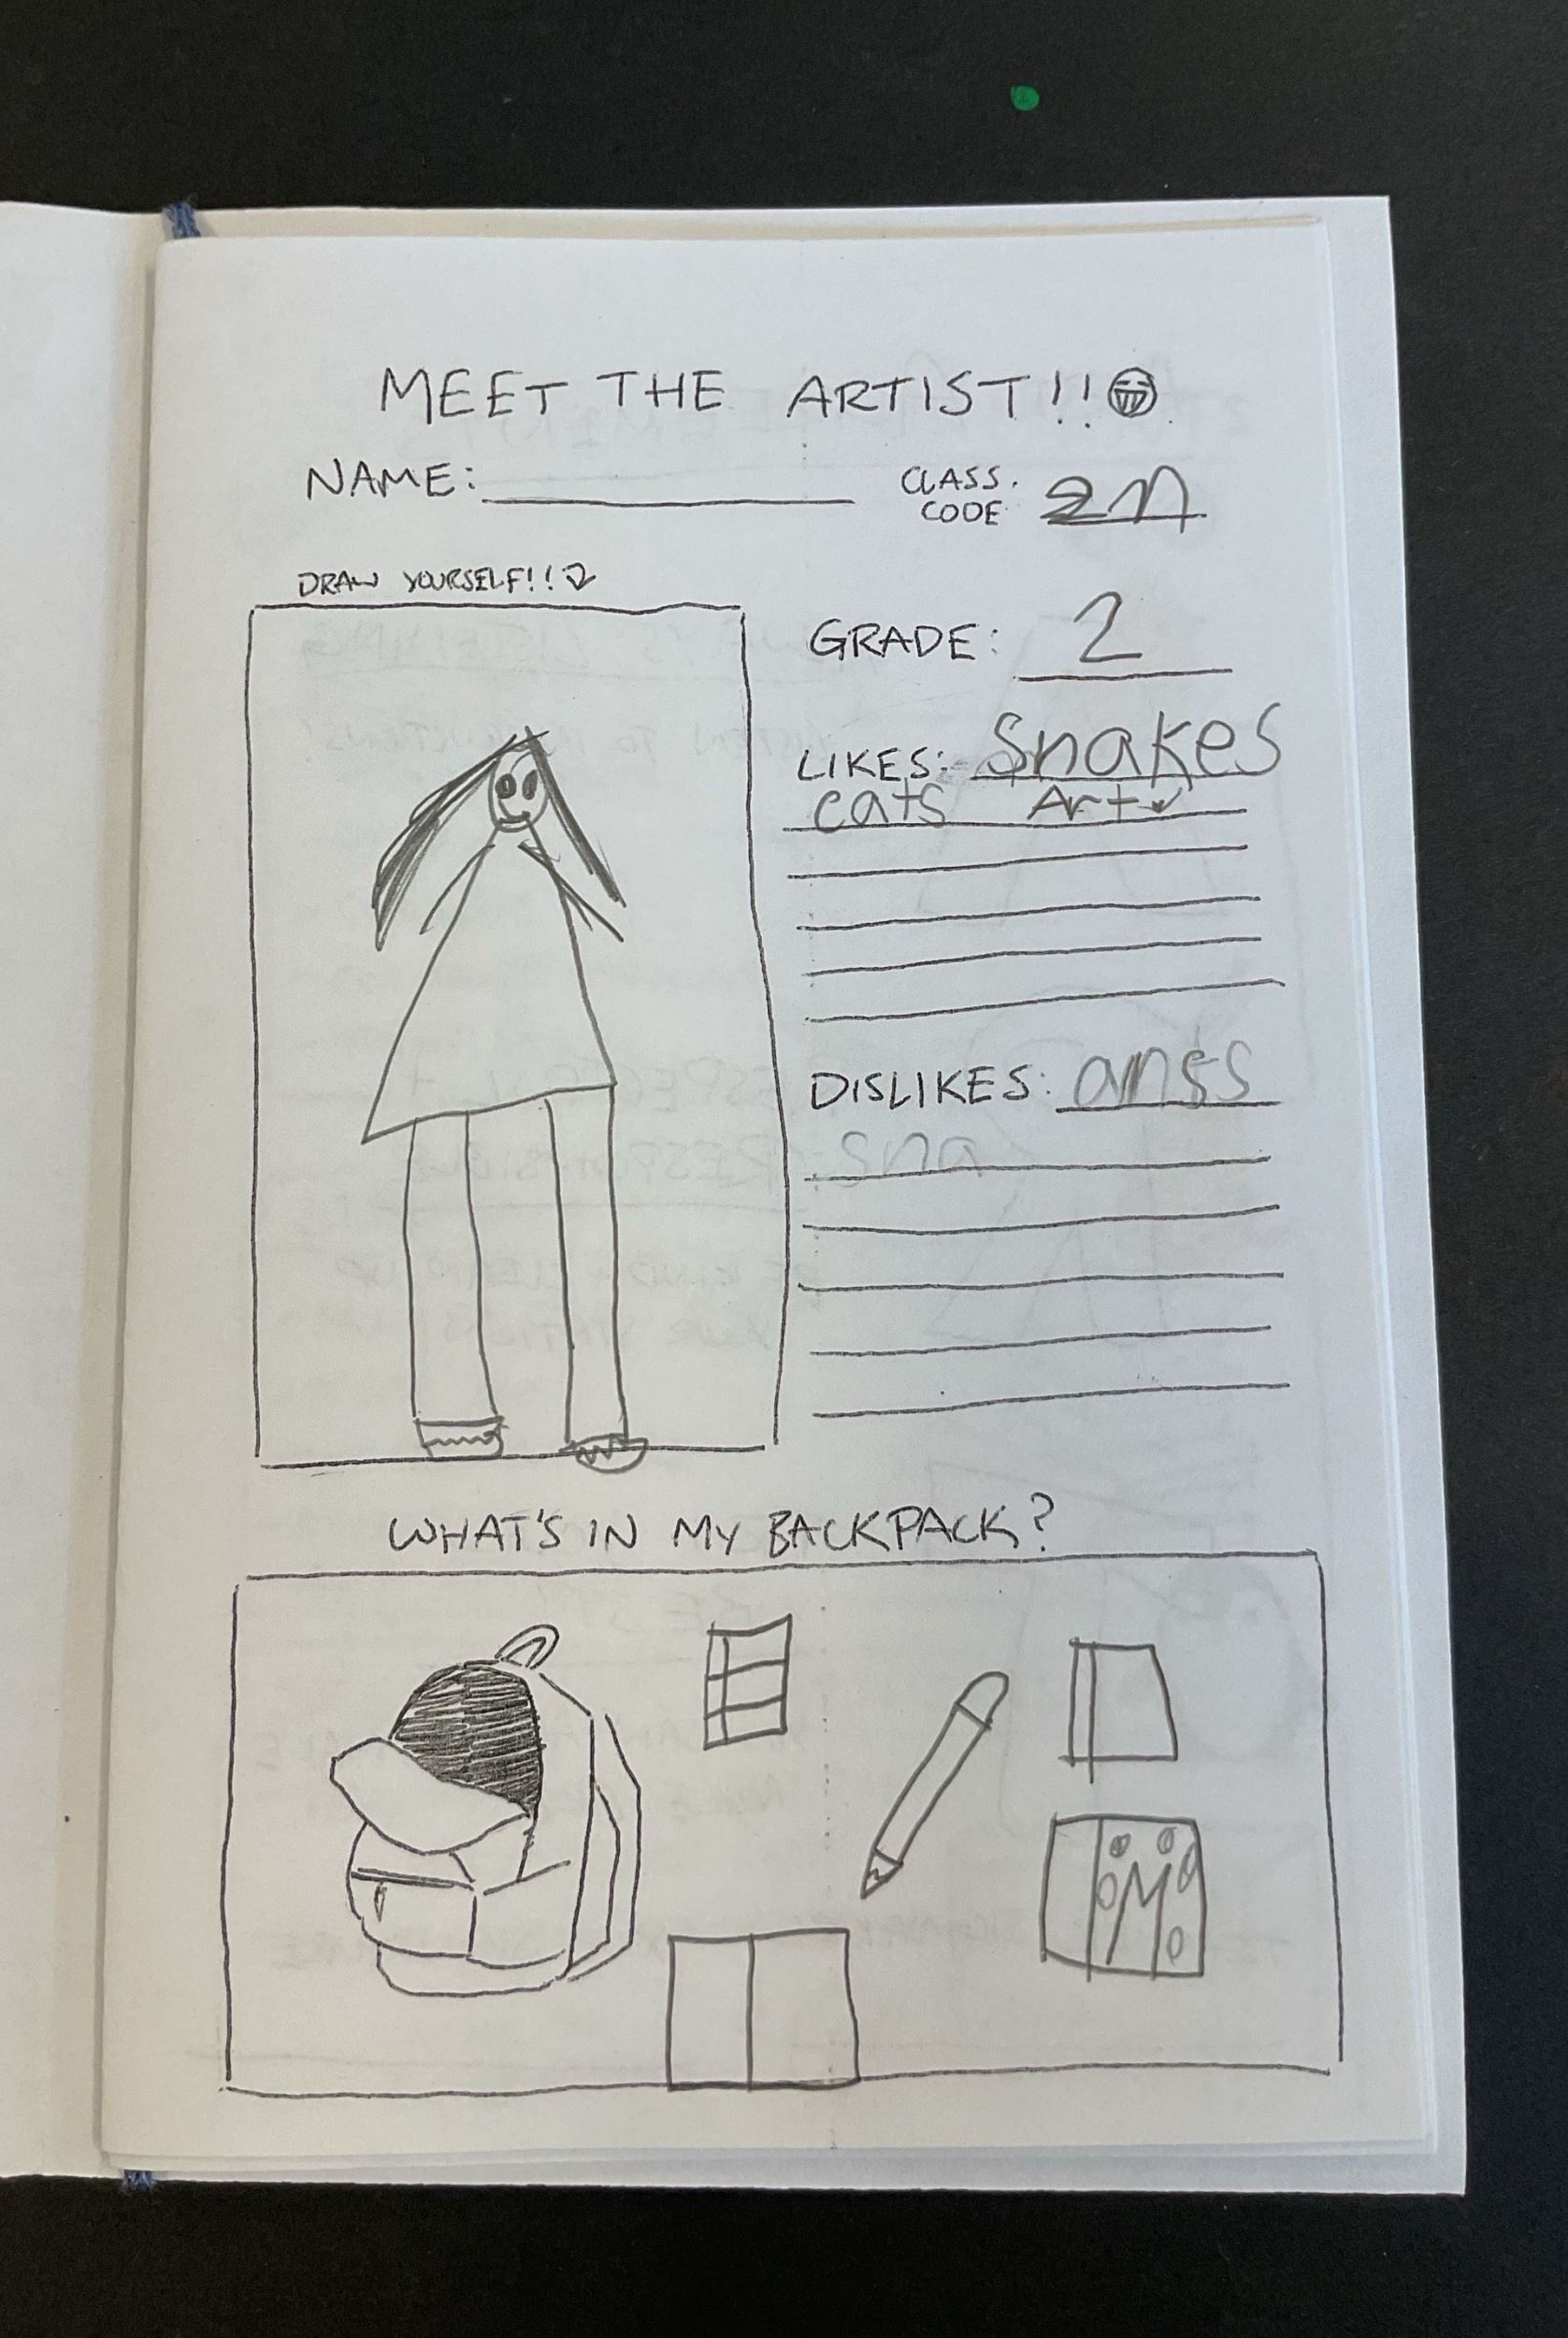 MEET THE ARTIST!!
NAME:
CLASS.
CODE 2M
DRAW YOURSELF!!
GRADE: 2
LIKES: Snakes
cats Art
DISLIKES:
WHAT'S IN MY BACKPACK?
M